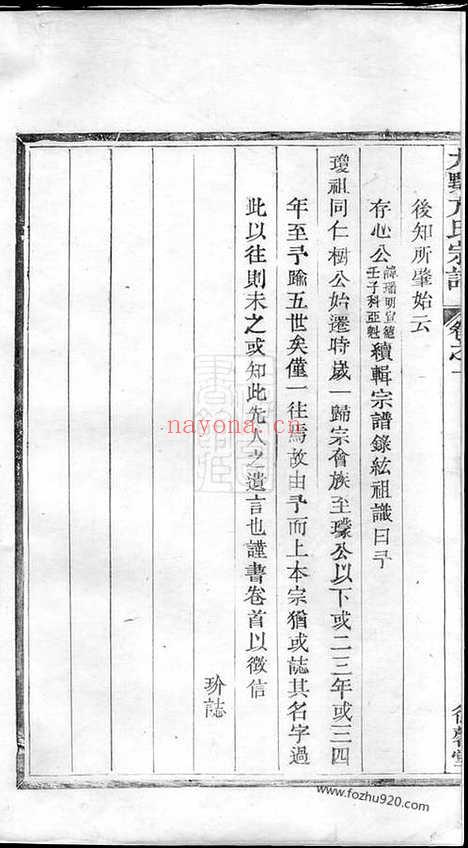 方氏宗譜
卷之一
後知所肇始云
存心公諱璠明宣德壬子科亞魁續輯宗譜錄紘祖識曰予
瓊祖同仁樹公始遷時歲一歸宗會族至瓈公以下或二三年或三四
年至予踰五世矣僅一往焉故由予而上本宗猶或誌其名字過
此以往則未之或知此先人之遺言也謹書卷首以徵信
玠誌
nayona.cn
www.fozhu920.com